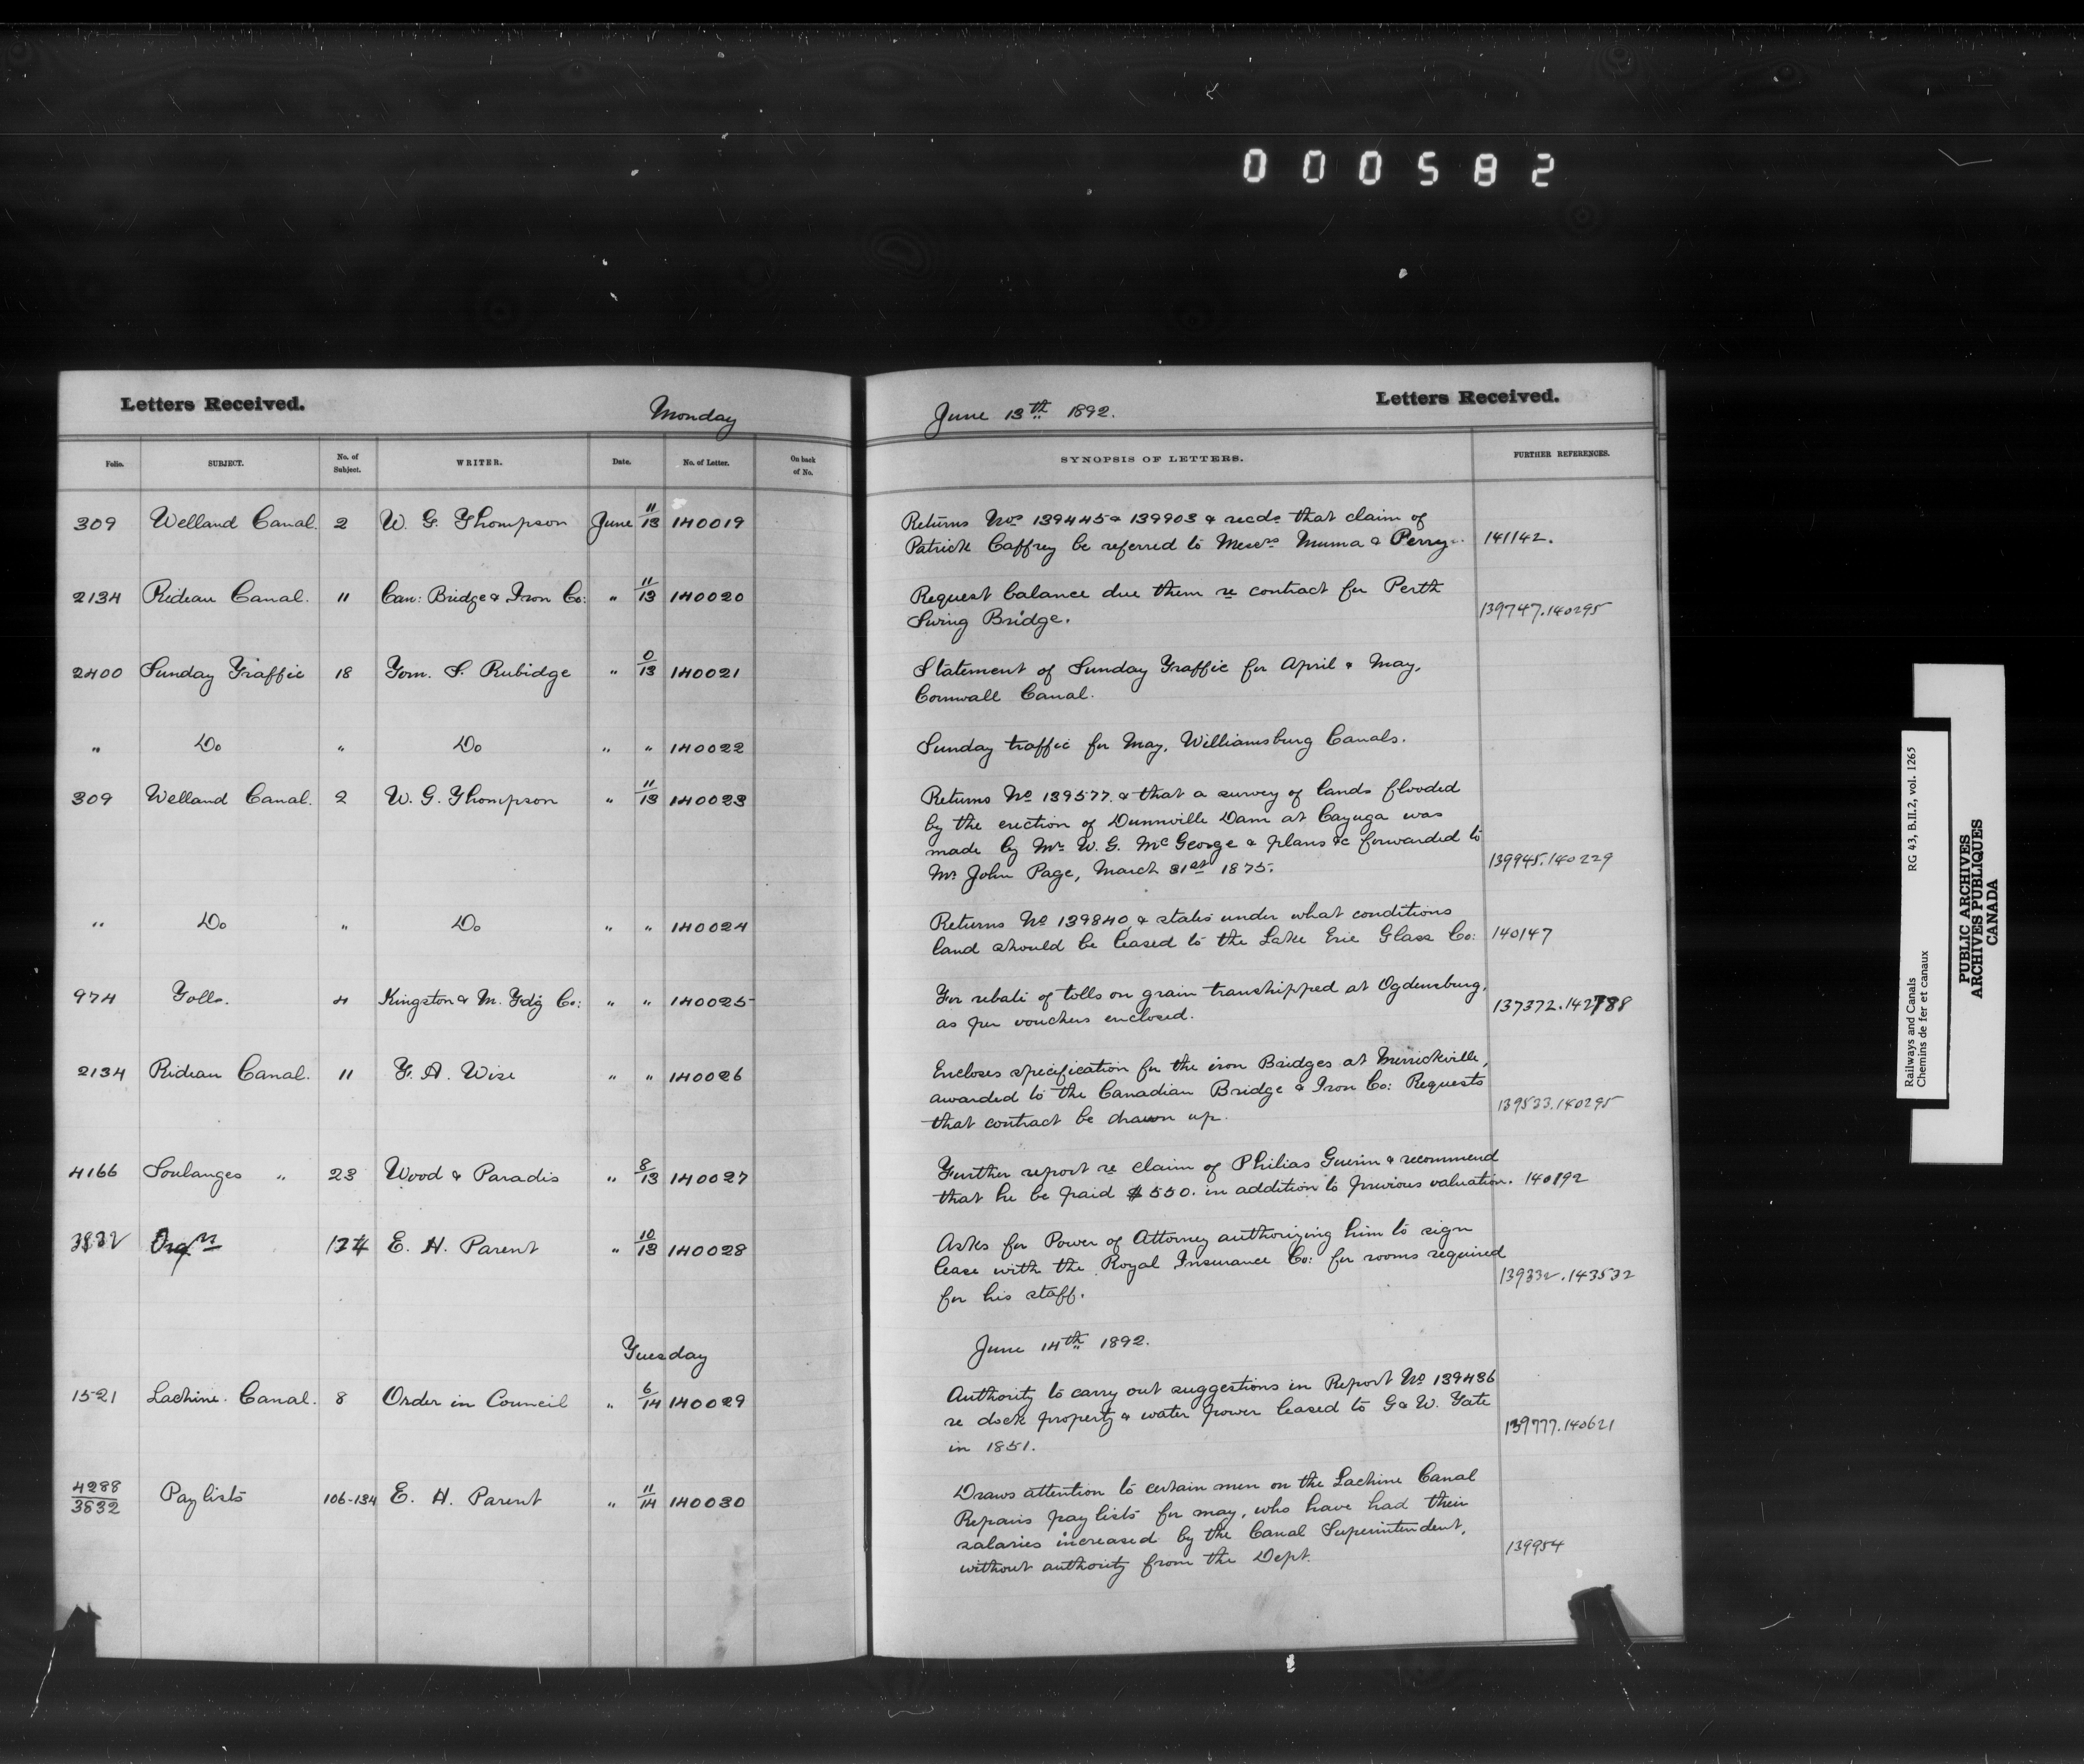 000582
Letters Received.
Monday
Folio. SUBJECT. No. of Subject. WRITER. Date. No. of Letter. On back of No.
309 Welland Canal. 2 W. G. Thompson June 11/13 140019
2134 Rideau Canal. 11 Can: Bridge & Iron Co: " 11/13 140020
2400 Sunday Traffic 18 Tom. S. Rubidge " 0/13 140021
" Do " Do " " 140022
309 Welland Canal. 2 W. G. Thompson " 11/13 140023
" Do " Do " " 140024
974 Tolls. 4 Kingston & M. Fdg Co: " " 140025
2134 Rideau Canal. 11 F. A. Wise " " 140026
4166 Soulanges " 23 Wood & Paradis " 8/13 140027
3832 Orgn 134 E. H. Parent " 10/13 140028
Tuesday
1521 Lachine Canal. 8 Order in Council " 6/14 140029
4288/3832 Pay lists 106-134 E. H. Parent " 11/14 140030
June 13th 1892.
Letters Received.
SYNOPSIS OF LETTERS. FURTHER REFERENCES.
Returns Nos 139445 & 139903 & recds that claim of
Patrick Caffrey be referred to Messrs Muma & Perry. 141142.
Request balance due them re contract for Perth
Swing Bridge. 139747.140295
Statement of Sunday Traffic for April & May,
Cornwall Canal.
Sunday traffic for May, Williamsburg Canals.
Returns No 139577. & that a survey of lands flooded
by the erection of Dunnville Dam at Cayuga was
made by Mr W. G. McGeorge & plans &c forwarded to
Mr John Page, March 31st 1875. 139945.140229
Returns No 139840, & states under what conditions
land should be leased to the Lake Erie Glass Co: 140147
For rebate of tolls on grain transhipped at Ogdensburg,
as per vouchers enclosed. 137372.142788
Encloses specification for the iron Bridges at Merrickville,
awarded to the Canadian Bridge & Iron Co: Requests
that contract be drawn up. 139533.140295
Further report re claim of Philias Guerin & recommend
that he be paid $550. in addition to previous valuation. 140192
Asks for Power of Attorney authorizing him to sign
lease with the Royal Insurance Co: for rooms required
for his staff. 139332.143532
June 14th 1892.
Authority to carry out suggestions in Report No 139486
re dock property & water power leased to G & W. Tate
in 1851. 139777.140621
Draws attention to certain men on the Lachine Canal
Repairs pay lists for may, who have had their
salaries increased by the Canal Superintendent,
without authority from the Dept. 139954
Railways and Canals RG 43, B.II.2, vol. 1265
Chemins de fer et canaux
PUBLIC ARCHIVES
ARCHIVES PUBLIQUES
CANADA